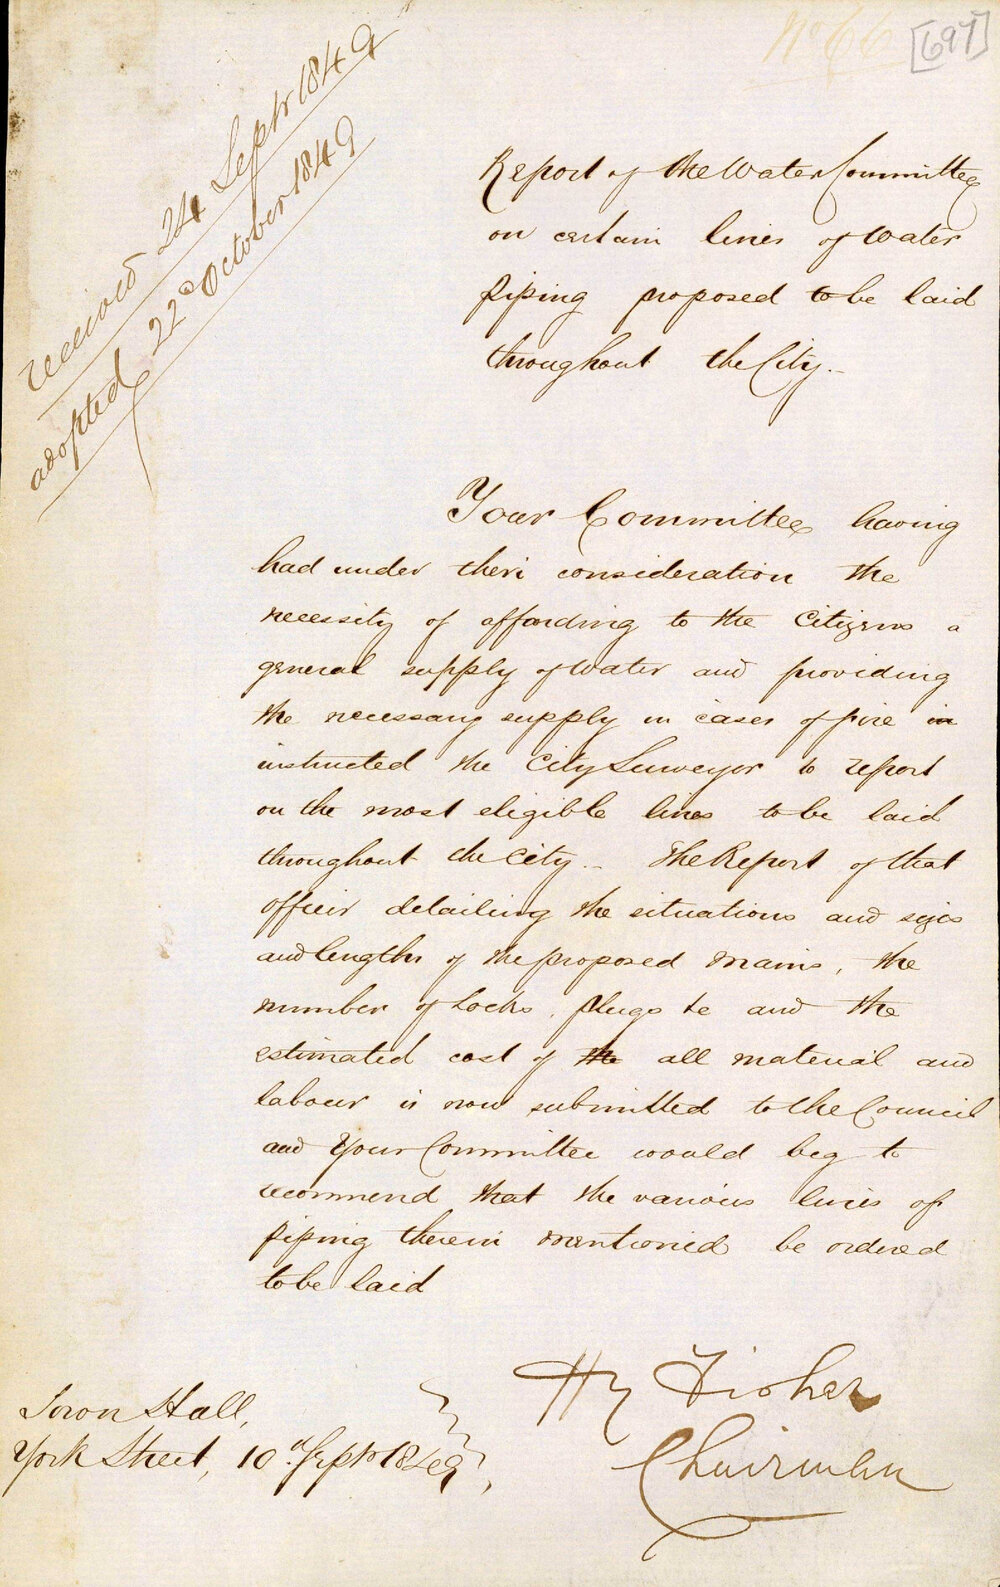 No 66 [697]
received 24 Septr 1849
adopted 22d October 1849
Report of the Water Committee
on certain lines of Water
piping proposed to be laid
throughout the City.
Your Committee having
had under their consideration the
necessity of affording to the Citizens a
general supply of Water and providing
the necessary supply in cases of fire in
instructed the City Surveyor to report
on the most eligible lines to be laid
throughout the City. The Report of that
officer detailing the situations and sizes
and lengths of the proposed mains, the
number of Cocks, plugs &c and the
estimated cost of the all material and
labour is now submitted to the Council
and Your Committee would beg to
recommend that the various lines of
piping therein mentioned be ordered
to be laid
Hy Fisher
Chairman
Town Hall,
York Street, 10th Septr 1849,